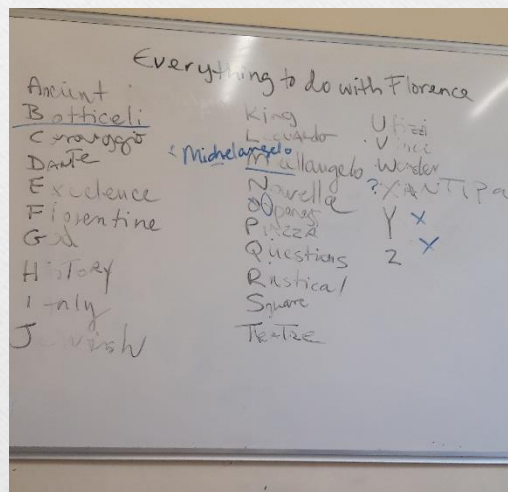 Everything to do with Florence
Ancient
Botticeli
Caravaggio
DANTE
Excelence
Fiorentine
HisTORY
Italy
Jewish
King
Michelangelo
Novella
PiAZZA
Questions
Rustical
Square
TeaTRE
Uffizi
Vinci
Wonder
? XANTIPa
Y x
Z x